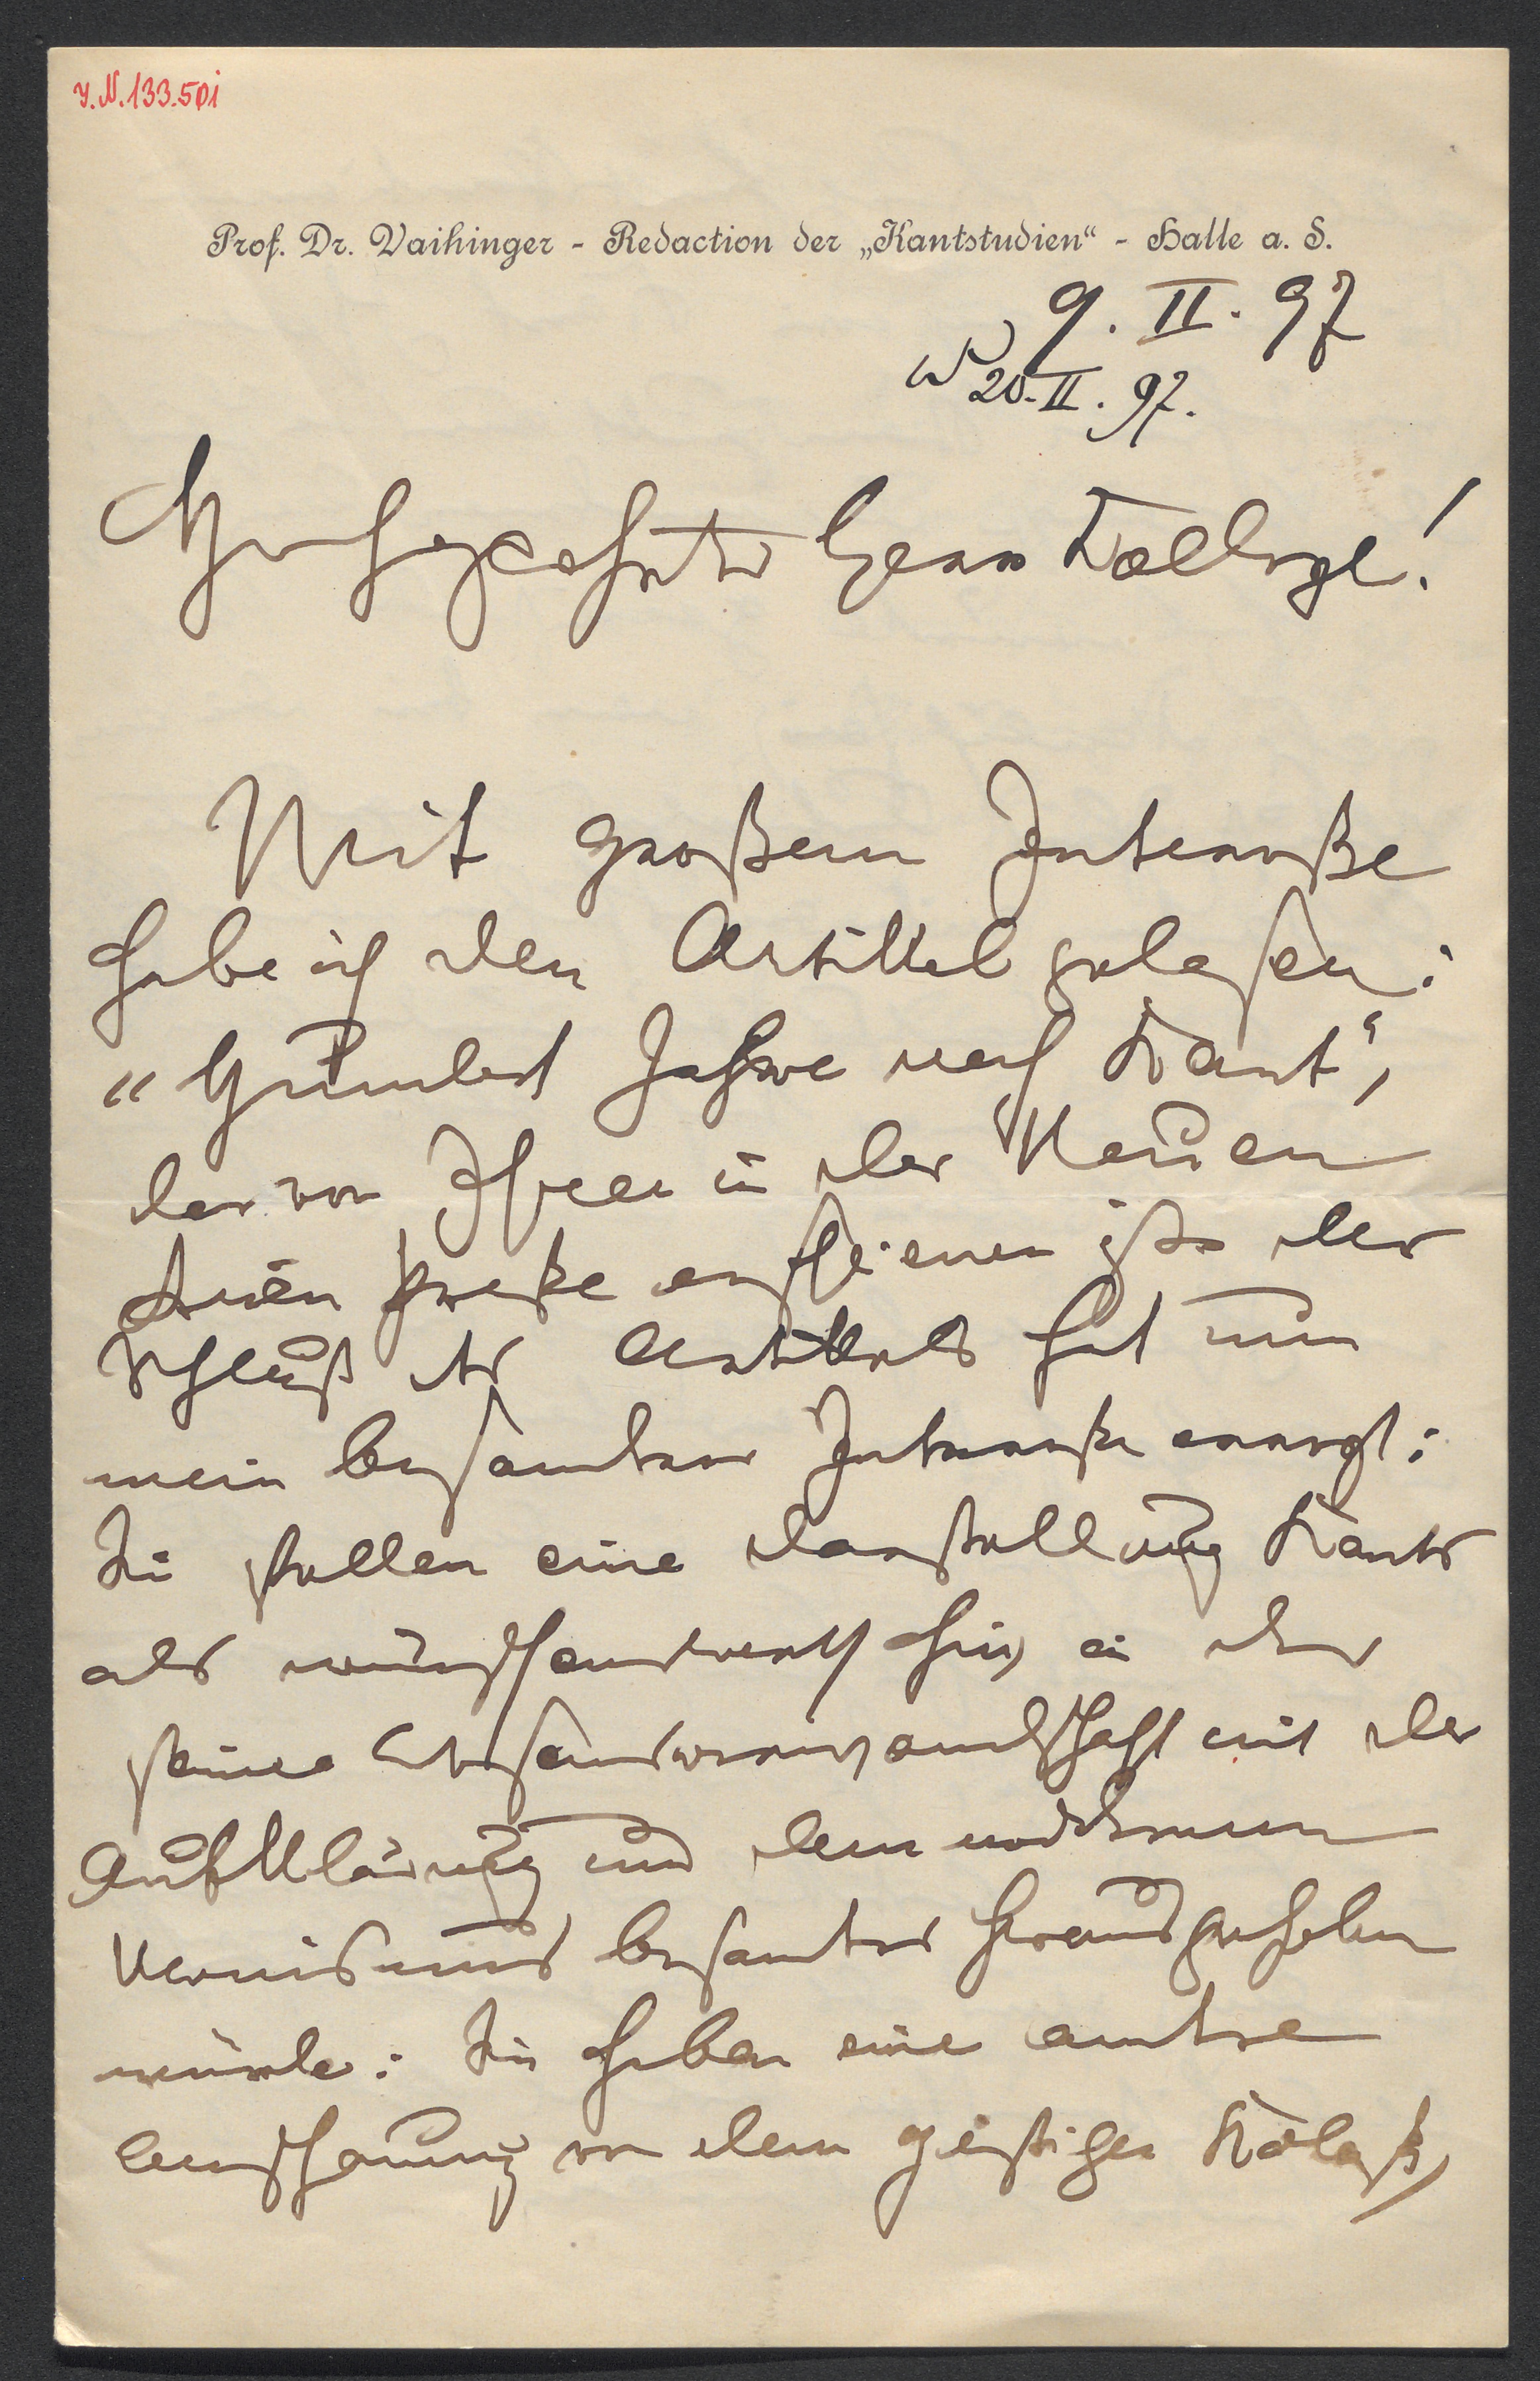 I.N. 133.501
Prof. Dr. Vaihinger - Redaction der „Kantstudien“ - Halle a. S.
9. II. 97
20. II. 97.
Hochgeehrter Herr Kollege!
Mit großem Interesse
habe ich den Artikkel gelesen:
„Hundert Jahre nach Kant“,
der von Ihnen in der Neuen
erschienen ist. Der
Schluß des Artikkels hat nun
mein besonderes Interesse erregt:
Sie stellen eine Darstellung Kants
als wünschenswerth hin, in der
seine Wesensverwandtschaft mit der
Aufkklärung und dem modernen
besonders herausgehoben
würde: Sie haben eine andere
Anschauung von dem geistigen Koloß,